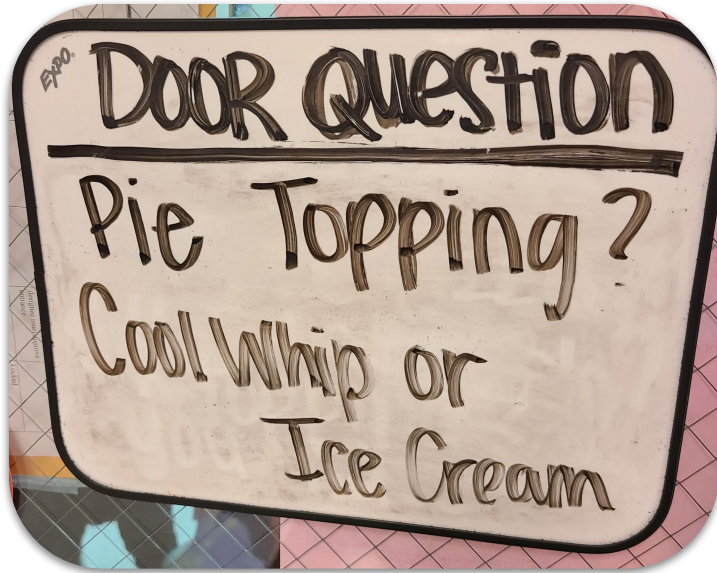 EXPO.
DOOR QUEStion
Pie Topping?
Cool Whip or
Ice Cream